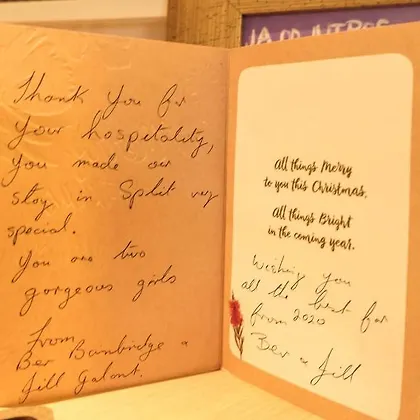 Thank you for
your hospitality,
you made our
stay in Split very
special.
You are two
gorgeous girls
From
Bev Bainbridge &
Jill Galant.
All things Merry
to you this Christmas.
All things Bright
in the coming year.
Wishing you
all the best for
from 2020
Bev & Jill